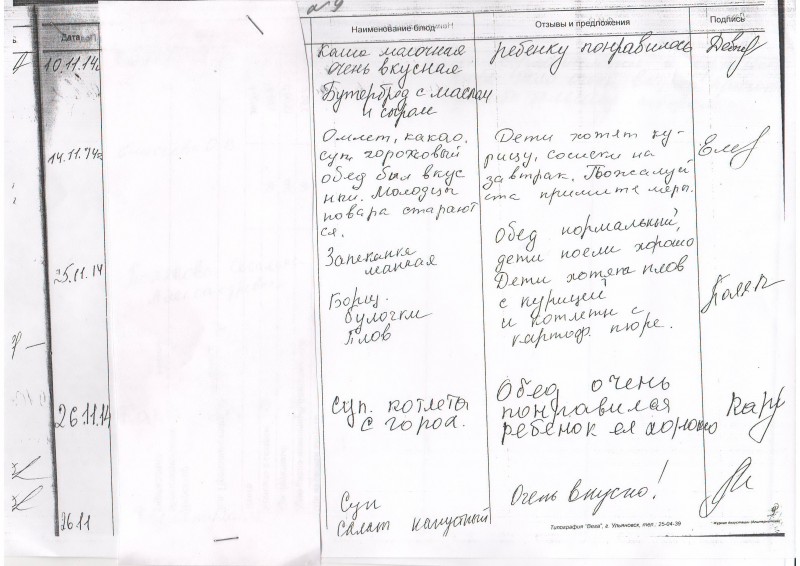 Дата
Наименование блюд
Отзывы и предложения
Подпись
10.11.14г
Каша молочная
очень вкусная
Бутерброд с маслом
и сыром
ребенку понравилось
14.11.14г
Омлет, какао.
суп гороховый
обед был вкус
ный. Молодцы
повара старают
ся.
Дети хотят ку-
рицу, сосиски на
завтрак. Пожалуй
ста примите меры.
25.11.14
Запеканка
манная
Борщ.
булочки
плов
Обед нормальный,
дети поели хорошо
Дети хотят плов
с курицей
и котлеты с
картоф. пюре.
26.11.14
Суп. котлеты
с горох.
Обед очень
понравился
ребенок ел хорошо
26.11
Суп
салат капустный
Очень вкусно!
Типография "Вега", г. Ульяновск, тел.: 25-04-39